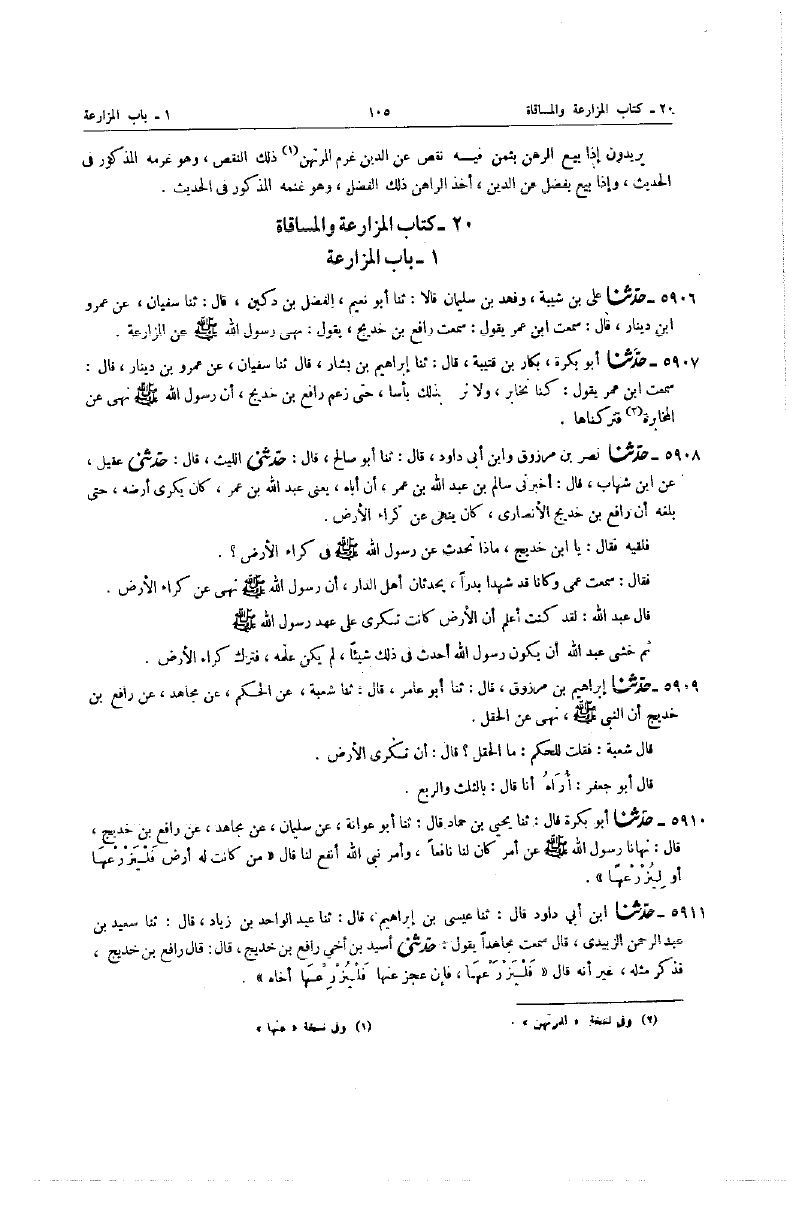 ٢٠ ـ كتاب المزارعة والمساقاة ١٠٥ ١ ـ باب المزارعة
يريدون إذا بيع الرهن بثمن فيه نقص عن الدين غرم المرتهن(١) ذلك النقص ، وهو غرمه المذكور فى
الحديث ، وإذا بيع بفضل عن الدين ، أخذ الراهن ذلك الفضل ، وهو غنمه المذكور فى الحديث .
٢٠ ـ كتاب المزارعة والمساقاة
١ ـ باب المزارعة
٥٩٠٦ ـ حدّثنا على بن شيبة ، وفهد بن سليمان قالا : ثنا أبو نعيم ، الفضل بن دكين ، قال : ثنا سفيان ، عن عمرو
ابن دينار ، قال : سمعت ابن عمر يقول : سمعت رافع بن خديج ، يقول : نهى رسول الله ﷺ عن المزارعة .
٥٩٠٧ ـ حدّثنا أبو بكرة ، بكار بن قتيبة ، قال : ثنا إبراهيم بن بشار ، قال ثنا سفيان ، عن عمرو بن دينار ، قال :
سمعت ابن عمر يقول : كنا نخابر ، ولا نر بذلك بأسا ، حتى زعم رافع بن خديج ، أن رسول الله ﷺ نهى عن
المخابرة(٢) فتركناها .
٥٩٠٨ ـ حدّثنا نصر بن مرزوق وابن أبى داود ، قال : ثنا أبو صالح ، قال : حدّثنى الليث ، قال : حدّثنى عقيل ،
عن ابن شهاب ، قال : أخبرنى سالم بن عبد الله بن عمر ، أن أباه ، يعنى عبد الله بن عمر ، كان يكرى أرضه ، حتى
بلغه أن رافع بن خديج الأنصارى ، كان ينهى عن كراء الأرض .
فلقيه فقال : يا ابن خديج ، ماذا تحدث عن رسول الله ﷺ فى كراء الأرض ؟ .
فقال : سمعت عمى وكانا قد شهدا بدراً ، يحدثان أهل الدار ، أن رسول الله ﷺ نهى عن كراء الأرض .
قال عبد الله : لقد كنت أعلم أن الأرض كانت تكرى على عهد رسول الله ﷺ
ثم خشى عبد الله أن يكون رسول الله أحدث فى ذلك شيئاً ، لم يكن علمه ، فترك كراء الأرض .
٥٩٠٩ ـ حدّثنا إبراهيم بن مرزوق ، قال : ثنا أبو عامر ، قال : ثنا شعبة ، عن الحكم ، عن مجاهد ، عن رافع بن
خديج أن النبى ﷺ ، نهى عن الحقل .
قال شعبة : فقلت للحكم : ما الحقل ؟ قال : أن تكرى الأرض .
قال أبو جعفر : أُرَاهُ أنا قال : بالثلث والربع .
٥٩١٠ ـ حدّثنا أبو بكرة قال : ثنا يحيى بن حماد قال : ثنا أبو عوانة ، عن سليمان ، عن مجاهد ، عن رافع بن خديج ،
قال : نهانا رسول الله ﷺ عن أمر كان لنا نافعاً ، وأمر نبى الله أنفع لنا قال « من كانت له أرض فَلْيَزْرَعْهَا
أو لِيُزْرِعْهَا » .
٥٩١١ ـ حدّثنا ابن أبي داود قال : ثنا عيسى بن إبراهيم ، قال : ثنا عبد الواحد بن زياد ، قال : ثنا سعيد بن
عبد الرحمن الزبيدى ، قال سمعت مجاهداً يقول : حدّثنى أسيد بن أخي رافع بن خديج ، قال : قال رافع بن خديج ،
فذكر مثله ، غير أنه قال « فَلْيَزْرَعْهَا ، فإن عجز عنها فَلْيُزْرِعْهَا أخاه » .
(٢) وفى نسخة « المرتهن » . (١) وفى نسخة « عنها »